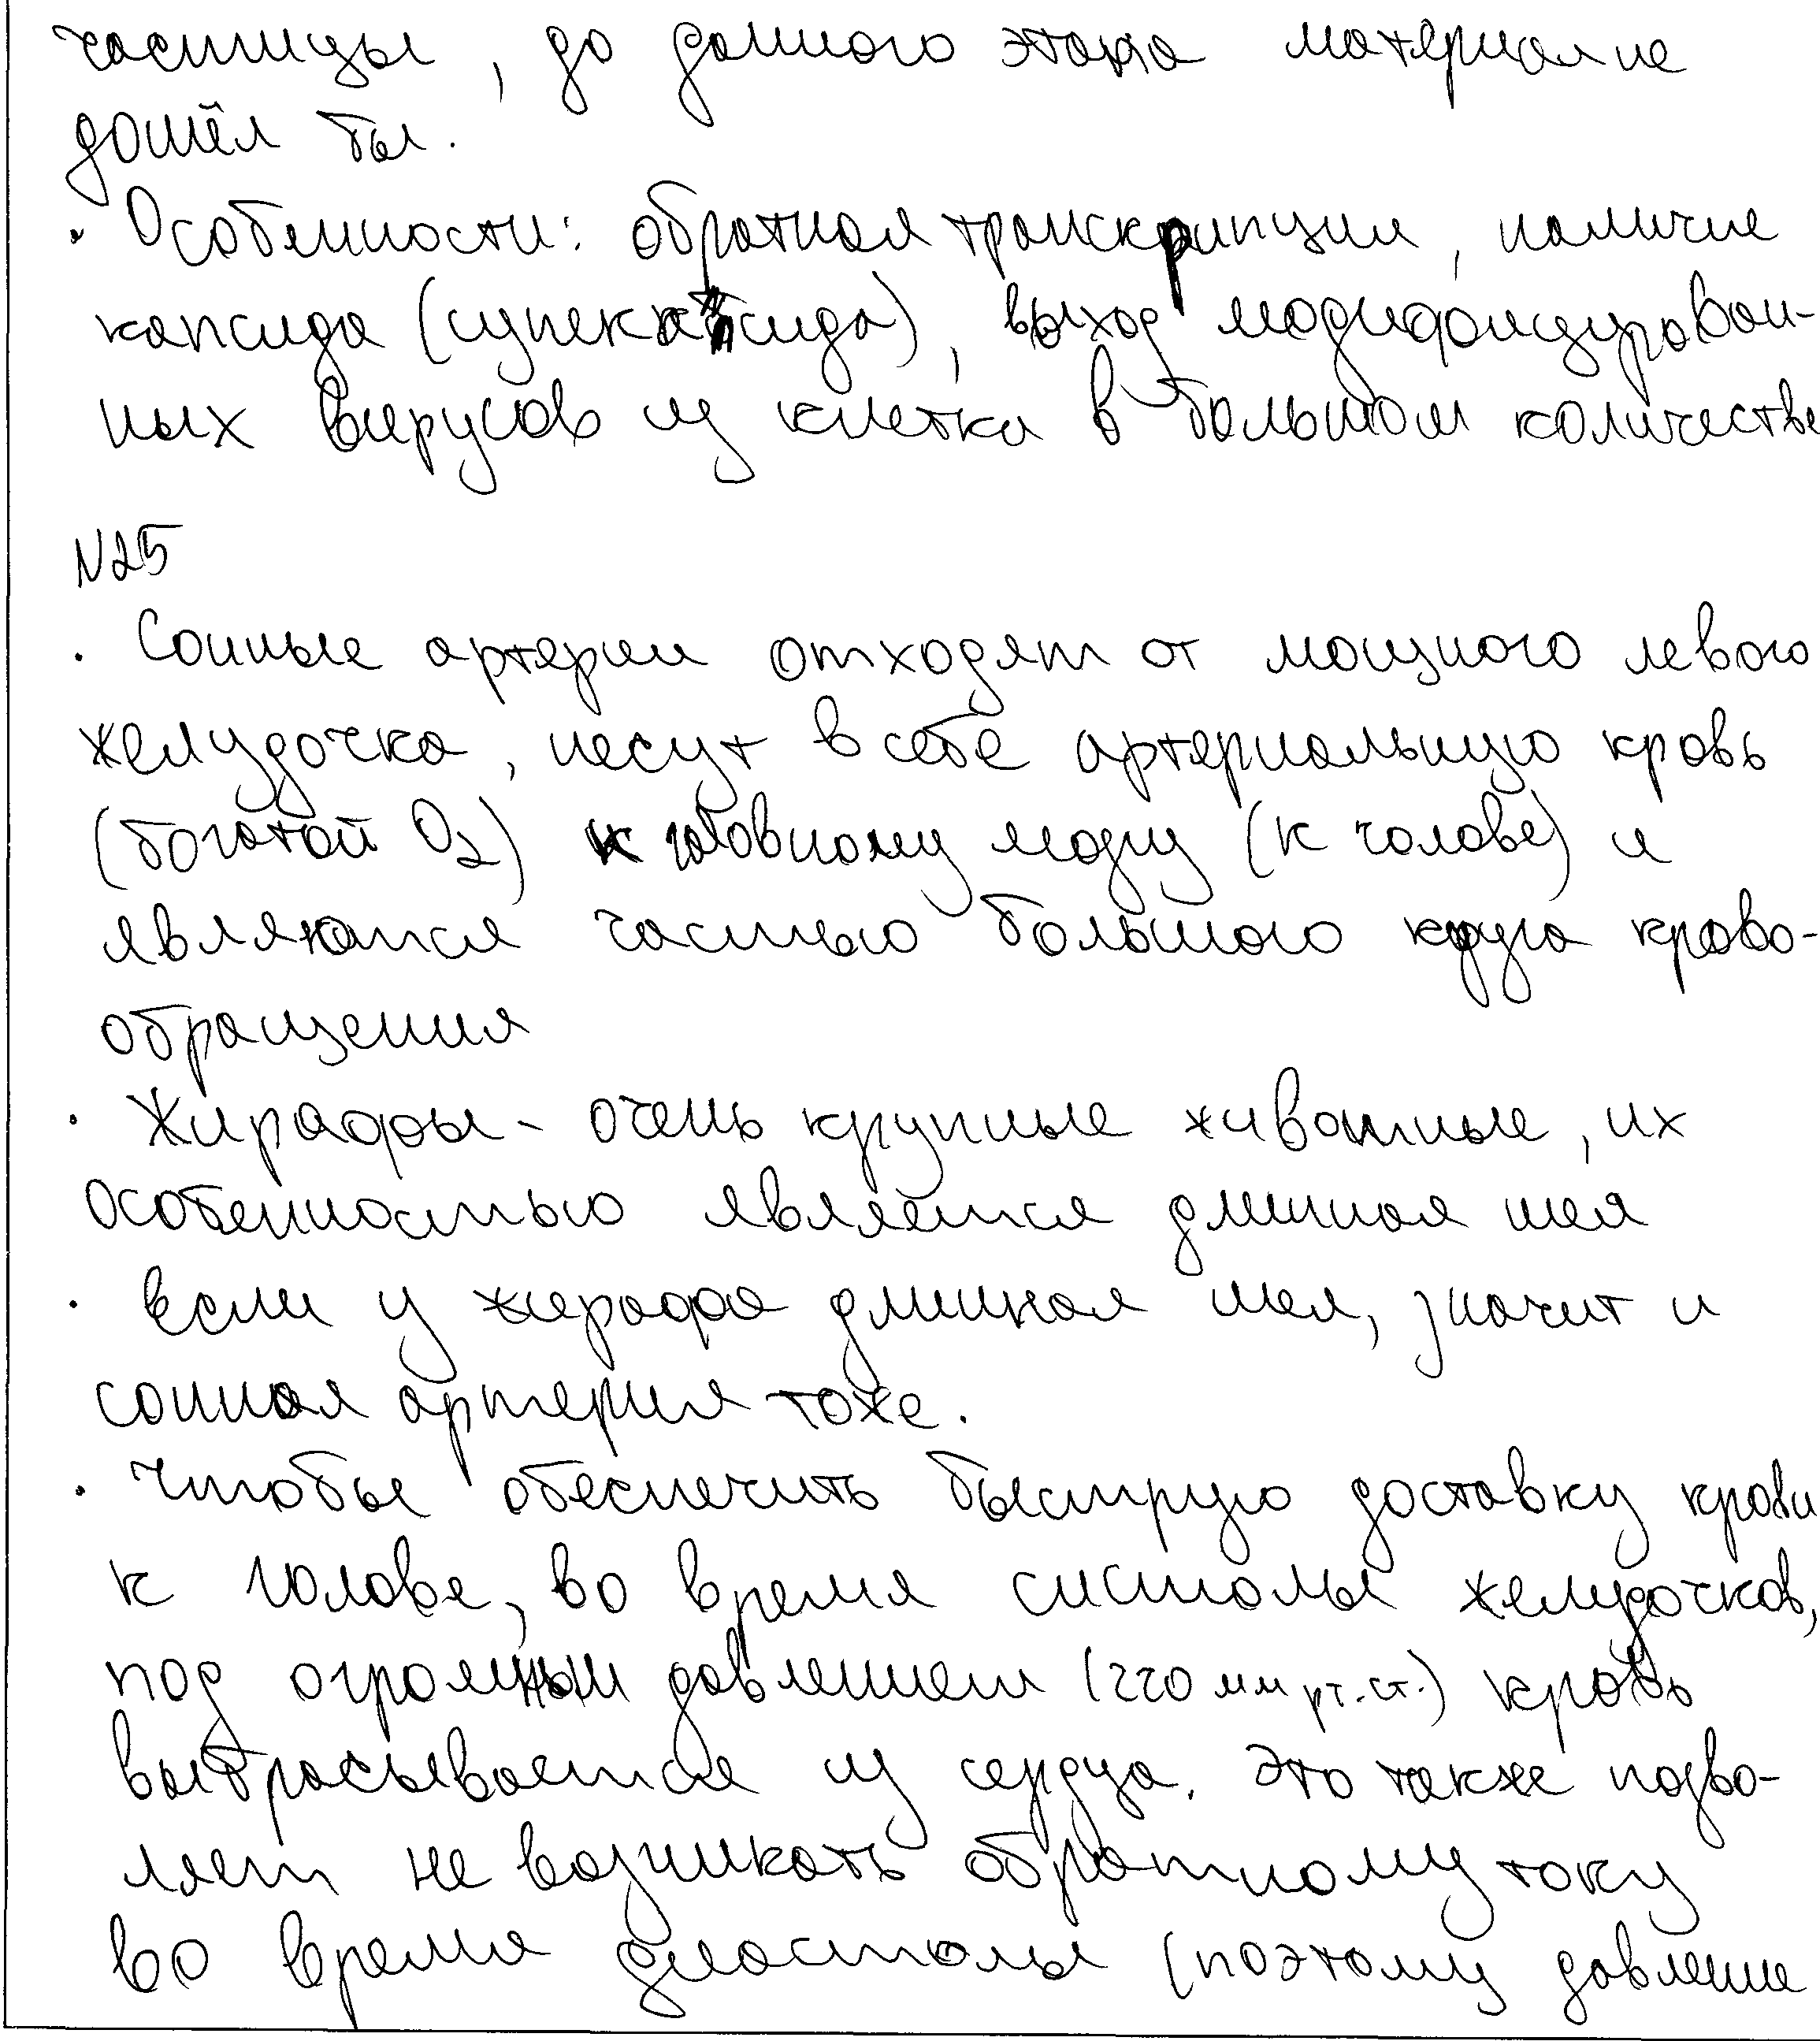 частицы, до данного этапа материал не
дошёл бы.
· Особенности: обратная транскрипция, наличие
капсида (супекапсида), выход модифицирован-
ных вирусов из клетки в большом количестве
N25
· Сонные артерии отходят от мощного левого
желудочка, несут в себе артериальную кровь
(богатой O2) к головному мозгу (к голове) и
являются частью большого круга крово-
обращения
· Жирафы - очень крупные животные, их
особенностью является длинная шея
· Если у жирафа длинная шея, значит и
сонная артерия тоже.
· Чтобы обеспечить быструю доставку крови
к голове, во время систолы желудочков,
под огромным давлением (220 мм рт.ст.) кровь
выбрасывается из сердца. Это также позво-
ляет не возникать обратному току
во время диастолы (поэтому давление